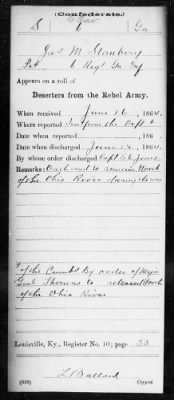 (Confederate.)
S 6 Ga
Jas M. Stanbery
Pvt 6 Regt Ga Inf
Appears on a roll of
Deserters from the Rebel Army.
When received June 16, 1864.
Where reported from the Dept +
Date when reported , 186 .
Date when discharged June 1 , 1864.
By whose order discharged Capt S E Jones
Remarks: Oath and to remain North
of the Ohio River during the war
+
of the Cumb'd By order of Major
Genl Thomas to released North
of the Ohio River
Louisville, Ky., Register No. 10; page 30
(639) Copyist.